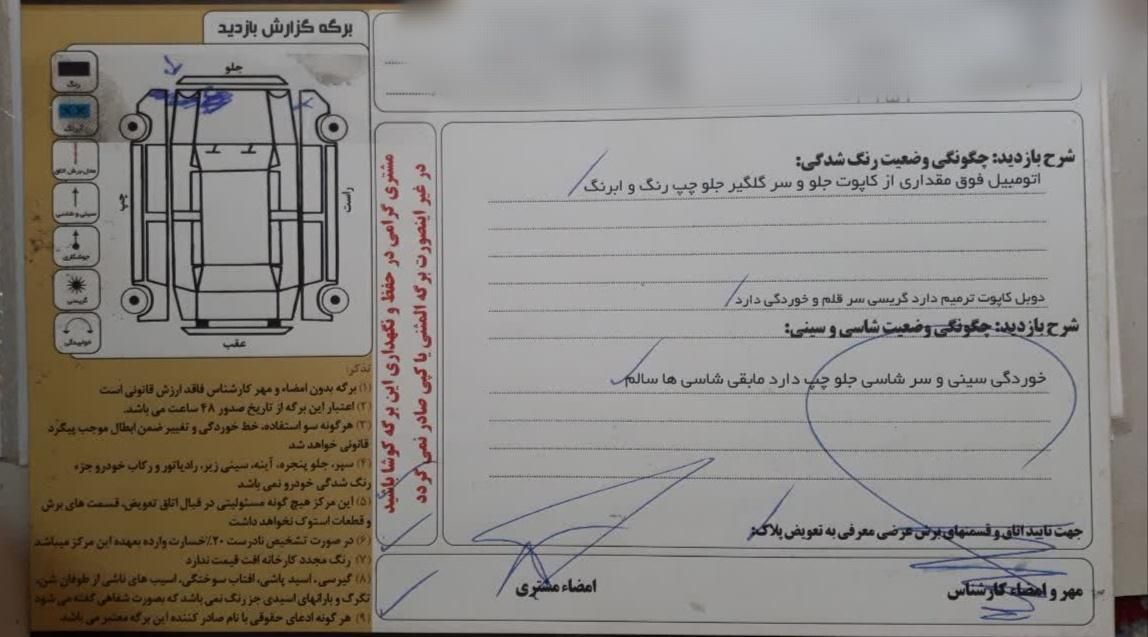 برگه گزارش بازدید
جلو
رنگ
آبرنگ
محل برش اتاق
سینی و شاسی
جوشکاری
گریسی
خوردگی
چپ
راست
عقب
تذکر:
۱) برگه بدون امضاء و مهر کارشناس فاقد ارزش قانونی است
۲) اعتبار این برگه از تاریخ صدور ۴۸ ساعت می باشد.
۳) هرگونه سو استفاده، خط خوردگی و تغییر ضمن ابطال موجب پیگرد
قانونی خواهد شد
۴) سپر، جلو پنجره، آینه، سینی زیر، رادیاتور و رکاب خودرو جزء
رنگ شدگی خودرو نمی باشد
۵) این مرکز هیچ گونه مسئولیتی در قبال اتاق تعویض، قسمت های برش
و قطعات استوک نخواهد داشت
۶) در صورت تشخیص نادرست ۲۰٪ خسارت وارده بعهده این مرکز میباشد
۷) رنگ مجدد کارخانه افت قیمت ندارد
۸) گیرسی، اسید پاشی، افتاب سوختگی، اسیب های ناشی از طوفان شن،
تگرگ و بارانهای اسیدی جز رنگ نمی باشد که بصورت شفاهی گفته می شود
۹) هر گونه ادعای حقوقی با نام صادر کننده این برگه معتبر می باشد.
مشتری گرامی در حفظ و نگهداری این برگه کوشا باشید
در غیر اینصورت برگه المثنی یا کپی صادر نمی گردد
شرح بازدید: چگونگی وضعیت رنگ شدگی:
اتومبیل فوق مقداری از کاپوت جلو و سر گلگیر جلو چپ رنگ و ابرنگ
دوبل کاپوت ترمیم دارد گریسی سر قلم و خوردگی دارد
شرح بازدید: چگونگی وضعیت شاسی و سینی:
خوردگی سینی و سر شاسی جلو چپ دارد مابقی شاسی ها سالم
جهت تایید اتاق و قسمتهای برش عرضی معرفی به تعویض پلاک:
مهر و امضاء کارشناس
امضاء مشتری